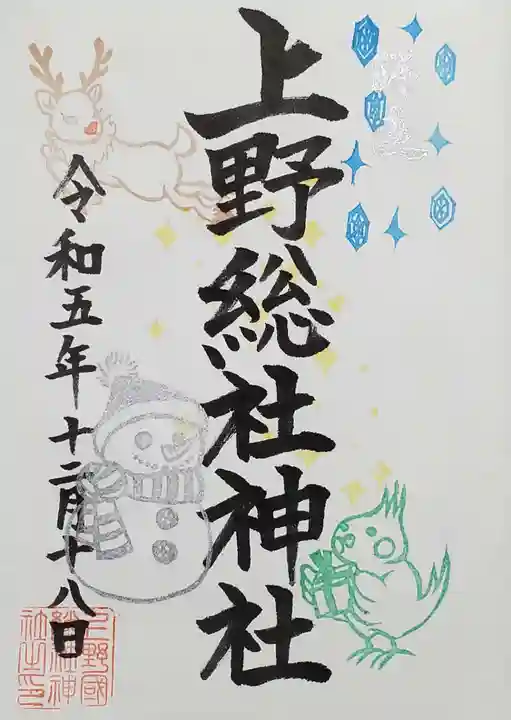 奉拝
上野総社神社
令和五年十二月十八日
上野國
総社神
社之印